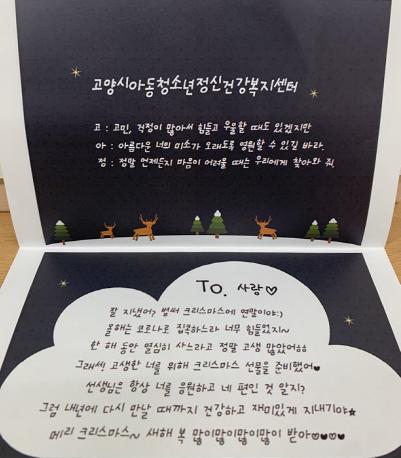 고양시아동청소년정신건강복지센터
고 : 고민, 걱정이 많아서 힘들고 우울할 때도 있겠지만
아 : 아름다운 너의 미소가 오래도록 영원할 수 있길 바라.
정 : 정말 언제든지 마음이 어려울 때는 우리에게 찾아와 줘.
To. 사랑♡
잘 지냈어? 벌써 크리스마스에 연말이야:)
올해는 코로나로 집콕하느라 너무 힘들었지~
한 해 동안 열심히 사느라고 정말 고생 많았어ㅎㅎ
그래서! 고생한 너를 위해 크리스마스 선물을 준비했어♥
선생님은 항상 너를 응원하고 네 편인 것 알지?
그럼 내년에 다시 만날 때까지 건강하고 재미있게 지내기야★
메리 크리스마스~ 새해 복 많이많이많이많이 받아♡♥♡♥